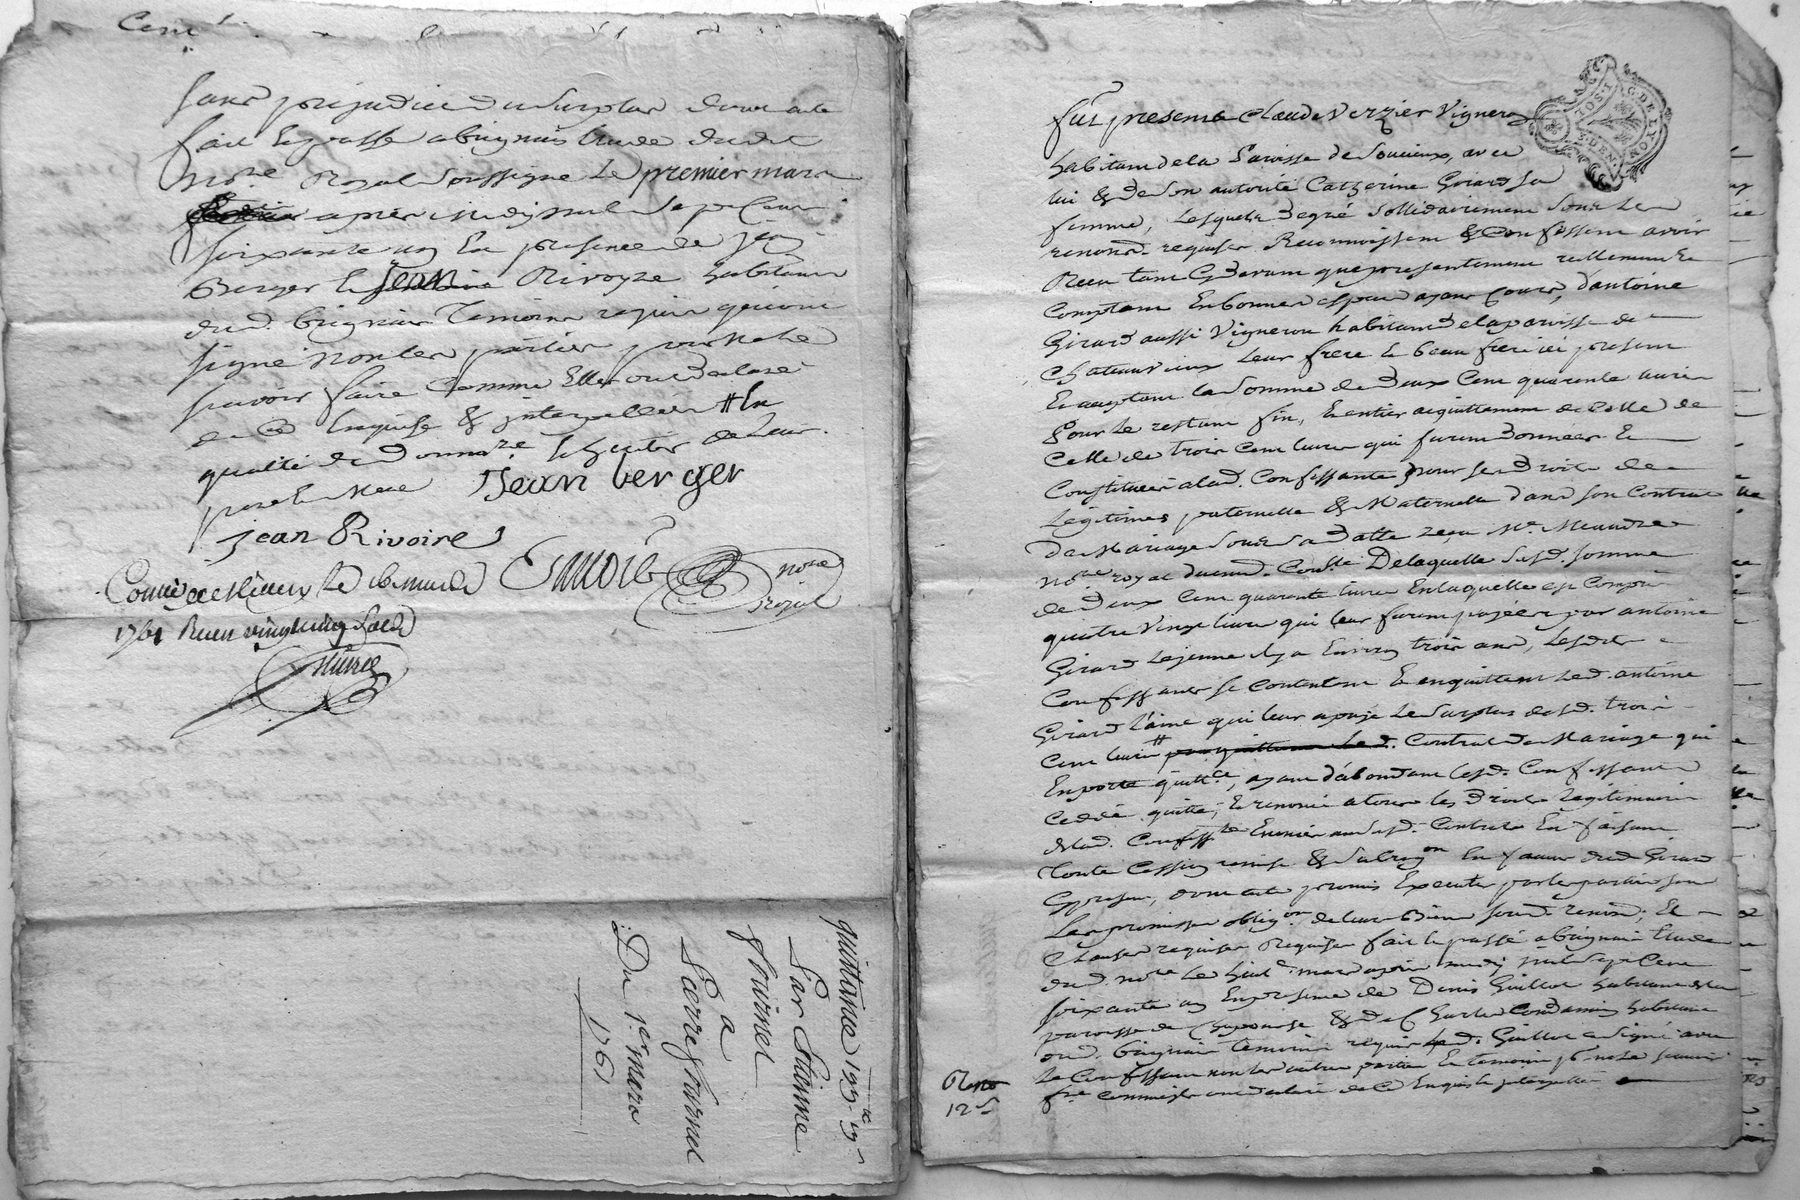 Cent
sans préjudice du surplus dont acte
fait et passé a brignais étude dudit
no.re Royal soussigné le premier mars
apres midy mil sept cent
soixante un en presence de jean
Berger et jean Rivoyre habitans
dud. brignais temoins requis qui ont
signé non les parties pour ne le
scavoir faire comme elles ont declaré
de ce enquise & interpellées # en
qualité de donn.re heritier de leur
pere et mere
Jean berger
jean Rivoire
no.re
royal
le 16 mars
1761 Receu vingt cinq sols
quittance 199 tt 19 s
Par Etienne
fournel
a
Pierre fournel
Du 1er mars
1761
G. DE LYON
DEN.
fut present Claude Verzier Vigneron
habitant de la Paroisse de Soucieux, avec
lui & de son autorité Catherine Girard sa
femme, lesquels de gré sollidairement sous les
renon.d requises Reconnoissent & Confessent avoir
Receu tant cydevant que presentement reellement et
comptant en bonnes especes ayans cours, d'antoine
Girard aussi Vigneron habitant de la paroisse de
Chateauvieux leur frere et beau frere ici present
et acceptant la somme de deux cent quarante livres
Pour le restant fin, et entier acquittement de celle de
celle de trois cent livres qui furent données et
Constituées a lad. Confessante pour ses droits de
Legitimes paternelle & Maternelle dans son Contrat
de Mariage sous sa datte receu M.e
no.re royal Delaquelle susd. somme
de deux cent quarante livres en laquelle est compris
quatre vingt livres qui leur furent payées par antoine
Girard le jeune il y a environ trois ans, lesdits
Confessans se contentent et en quittent led. antoine
Girard l'ainé qui leur a payé le surplus desd. trois
cent livres # Contrat de Mariage qui
en porte quitt.ce, ayant d'abondant lesd. Confessans
cedé quitté, et renoncé a tous les droits legitimaires
de lad. Confess.te enoncés aud. Contrat en faisant
toute cession remise & subrog.on en faveur dud. Girard
dont acte promis executer par les parties sous
les promisses oblig.on de leurs biens renon.d et
clauses requises Requises fait et passé a brignais étude
dud. no.re le huit mars apres midy mil sept cent
soixante un en presence de Denis Guillot habitant de la
paroisse de Chaponost & de Charles Condamin habitant
aud. brignais temoins requis led. Guillot a signé avec
le Confessant non les autres parties et temoin p.r ne le scavoir
fre comme ils ont declaré de ce enquis et interpellés
12 s